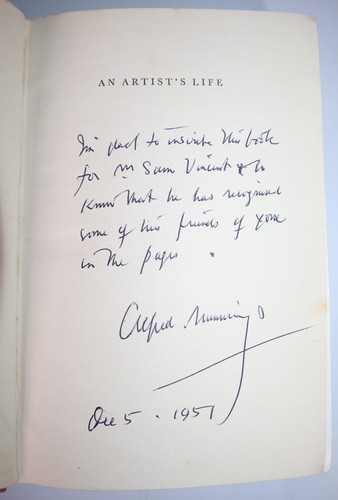 AN ARTIST'S LIFE
I'm glad to inscribe this book
for Mr Sam Vincent & to
know that he has recognised
some of his friends of yore
in the pages.
Alfred Munnings
Dec 5 - 1951